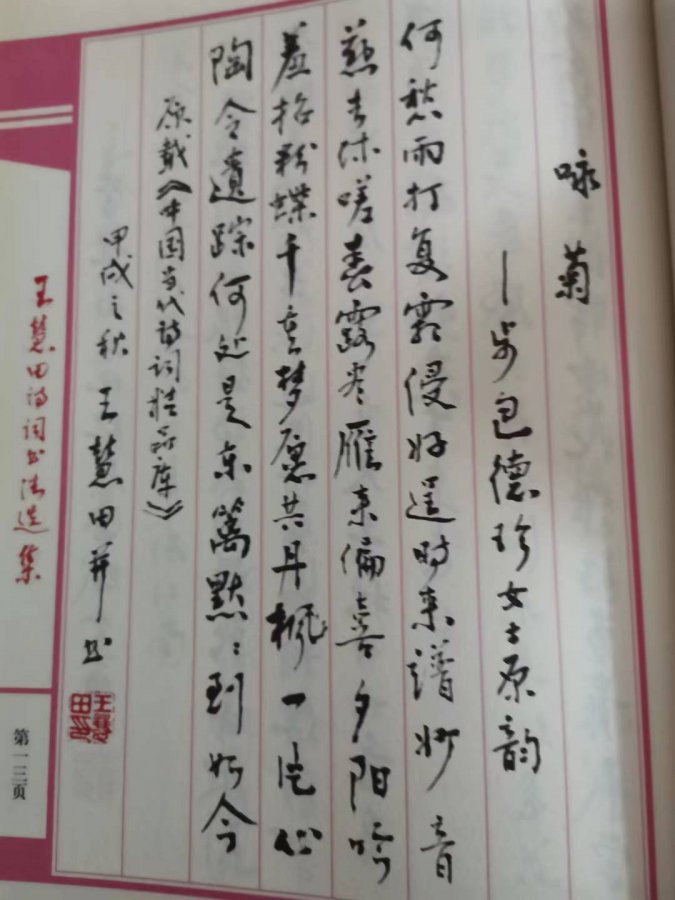 咏菊
—步包德珍女士原韵
何愁雨打复霜侵好逞时来谱妙音
燕去休嗟春露雁来偏喜夕阳吟
羞招粉蝶千重梦愿共丹枫一片心
陶令遗踪何处是东篱默:到如今
原载《中国当代诗词精品库》
甲戌之秋 王慧田并书
王慧田印
王慧田诗词书法选集
第一三页